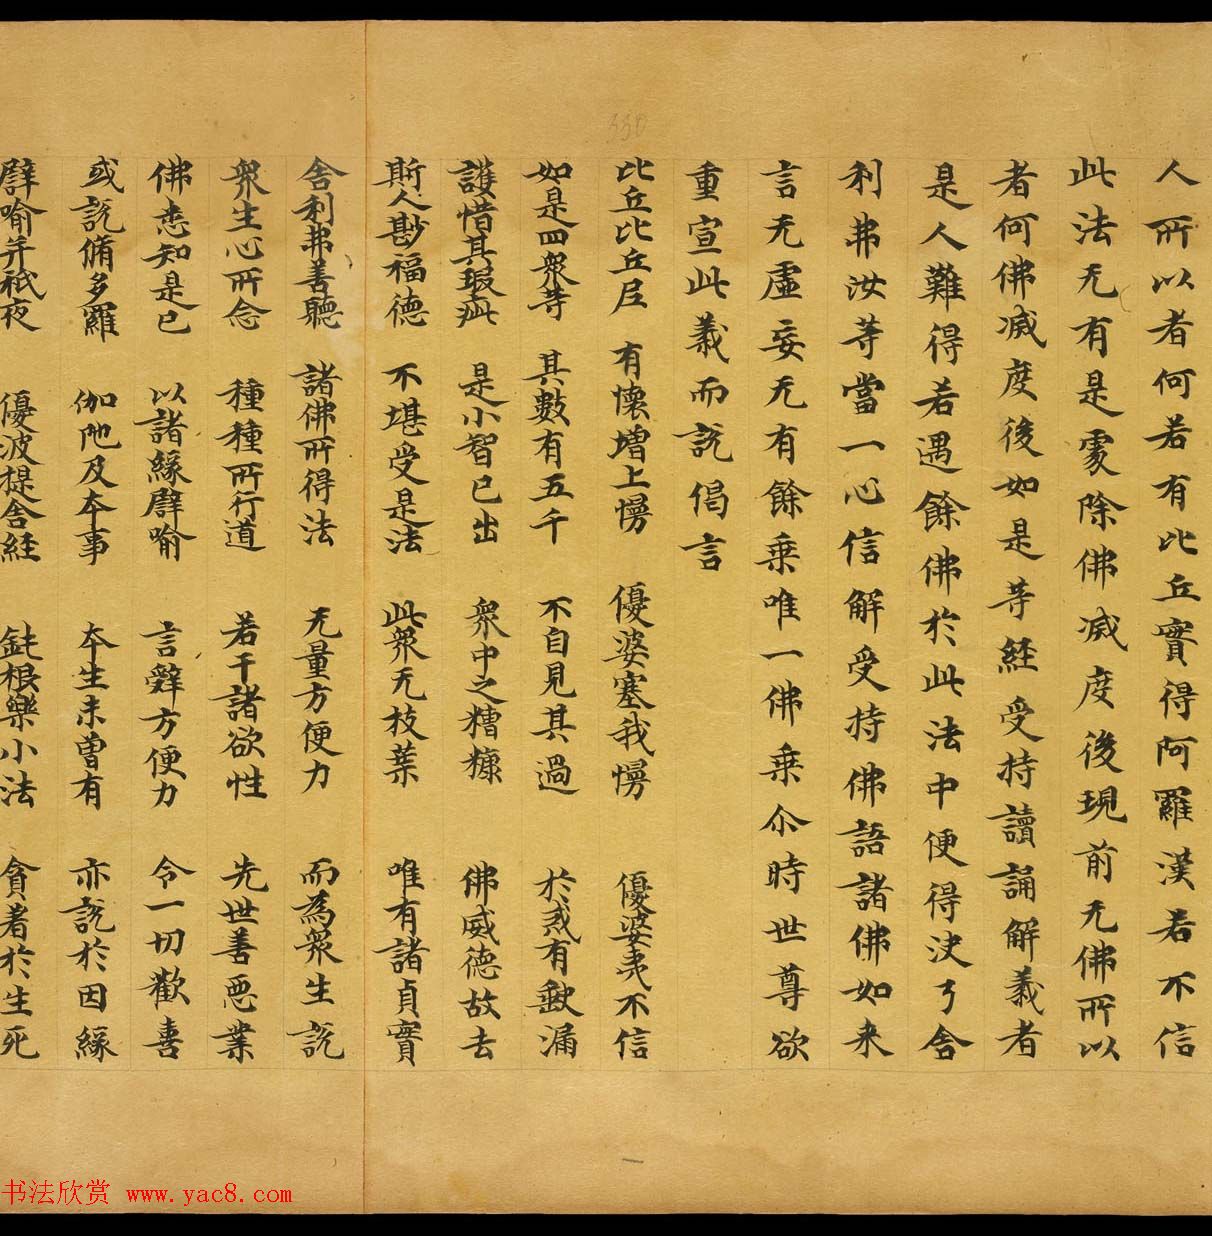 人所以者何若有比丘實得阿羅漢若不信
此法无有是處除佛滅度後現前无佛所以
者何佛滅度後如是等経受持讀誦解義者
是人難得若遇餘佛於此法中便得決了舍
利弗汝等當一心信解受持佛語諸佛如来
言无虛妄无有餘乗唯一佛乗尒時世尊欲
重宣此義而說偈言
比丘比丘尼 有懷增上慢 優婆塞我慢 優婆夷不信
如是四衆等 其數有五千 不自見其過 於戒有缺漏
護惜其瑕疵 是小智已出 衆中之糟糠 佛威德故去
斯人尠福德 不堪受是法 此衆无枝葉 唯有諸貞實
舍利弗善聽 諸佛所得法 无量方便力 而為衆生說
衆生心所念 種種所行道 若干諸欲性 先世善惡業
佛悉知是已 以諸緣譬喻 言辭方便力 令一切歡喜
或說脩多羅 伽陁及本事 本生未曾有 亦說於因緣
譬喻并祇夜 優波提舍経 鈍根樂小法 貪著於生死
330
书法欣赏 www.yac8.com